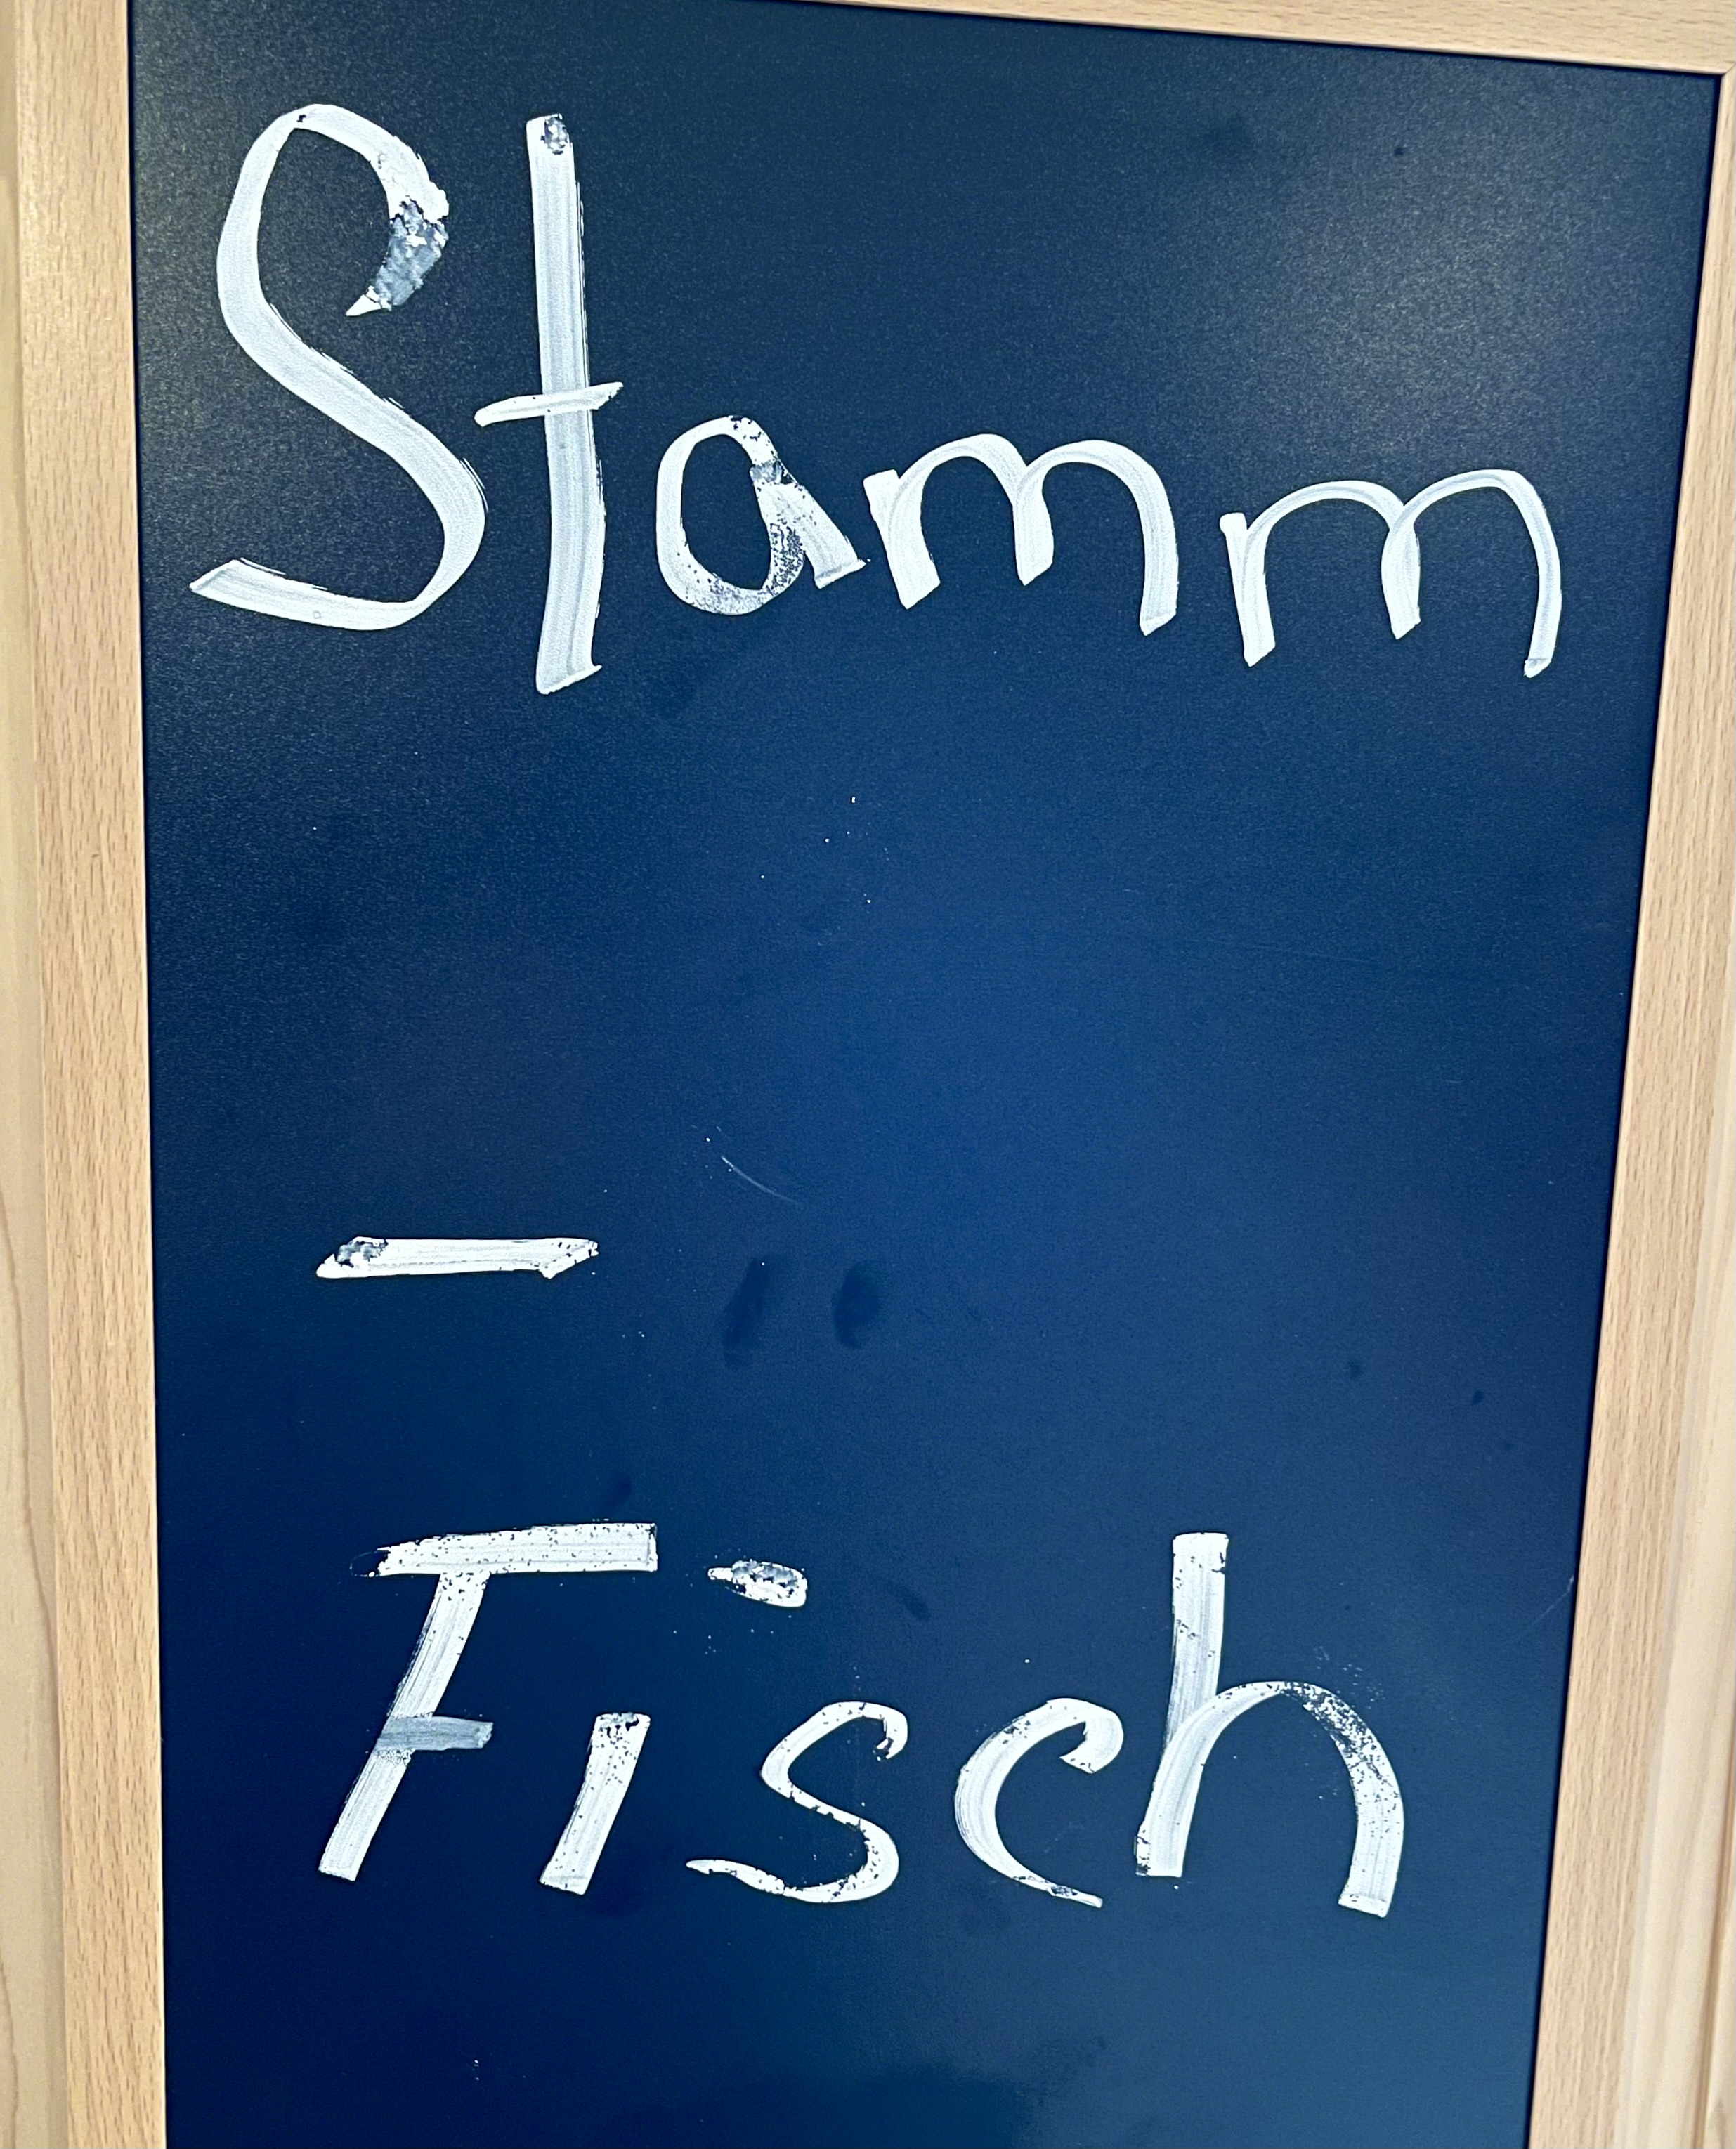 Stamm
-
Fisch